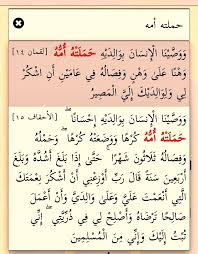 حملته أمه
وَوَصَّيْنَا الْإِنسَانَ بِوَالِدَيْهِ حَمَلَتْهُ أُمُّهُ [لقمان ١٤]
وَهْنًا عَلَىٰ وَهْنٍ وَفِصَالُهُ فِي عَامَيْنِ أَنِ اشْكُرْ لِي
وَلِوَالِدَيْكَ إِلَيَّ الْمَصِيرُ
وَوَصَّيْنَا الْإِنسَانَ بِوَالِدَيْهِ إِحْسَانًا ۖ [الأحقاف ١٥]
حَمَلَتْهُ أُمُّهُ كُرْهًا وَوَضَعَتْهُ كُرْهًا ۖ وَحَمْلُهُ
وَفِصَالُهُ ثَلَاثُونَ شَهْرًا ۚ حَتَّىٰ إِذَا بَلَغَ أَشُدَّهُ وَبَلَغَ
أَرْبَعِينَ سَنَةً قَالَ رَبِّ أَوْزِعْنِي أَنْ أَشْكُرَ نِعْمَتَكَ
الَّتِي أَنْعَمْتَ عَلَيَّ وَعَلَىٰ وَالِدَيَّ وَأَنْ أَعْمَلَ
صَالِحًا تَرْضَاهُ وَأَصْلِحْ لِي فِي ذُرِّيَّتِي ۖ إِنِّي
تُبْتُ إِلَيْكَ وَإِنِّي مِنَ الْمُسْلِمِينَ